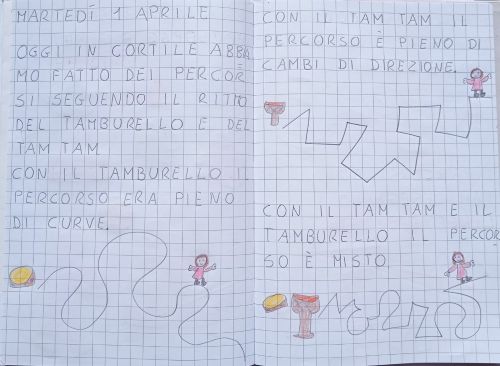 MARTEDÍ 1 APRILE
OGGI IN CORTILE ABBIA
MO FATTO DEI PERCOR
SI SEGUENDO IL RITMO
DEL TAMBURELLO E DEL
TAM TAM
CON IL TAMBURELLO IL
PERCORSO ERA PIENO
DI CURVE.
CON IL TAM TAM IL
PERCORSO È PIENO DI
CAMBI DI DIREZIONE.
CON IL TAM TAM E IL
TAMBURELLO IL PERCOR
SO È MISTO